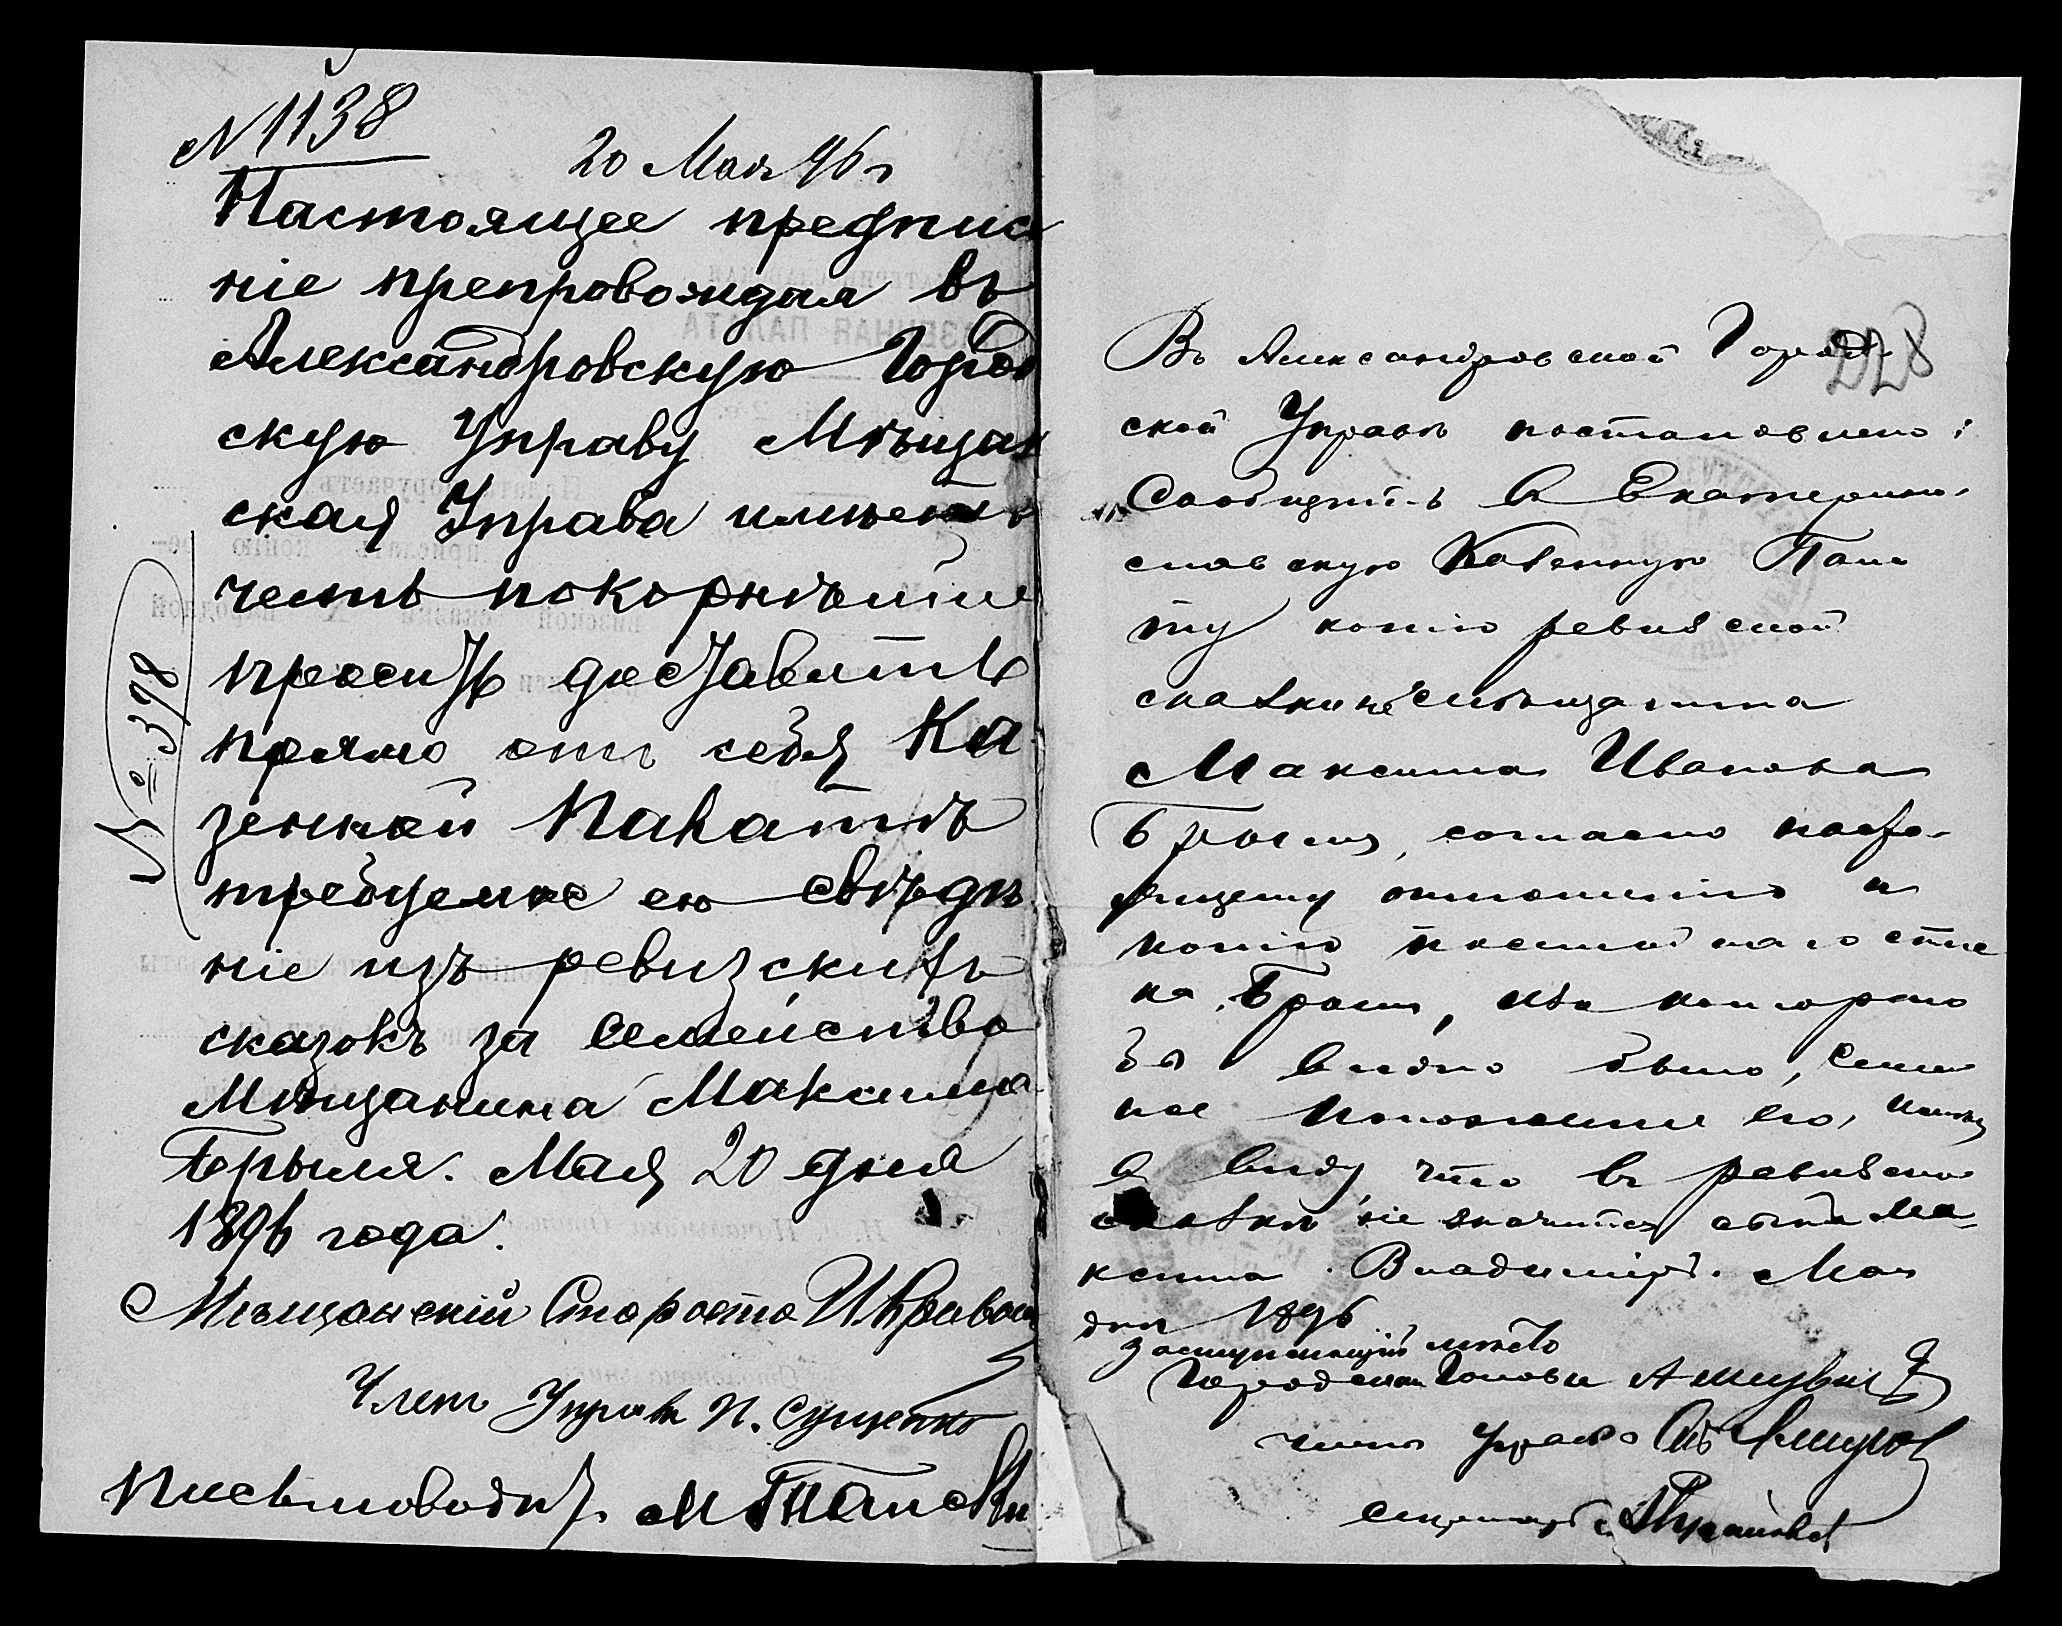 № 1138
20 Мая 96 г
Настоящее предписа
ніе препровождая въ
Александровскую Город
скую Управу Мѣщан
ская Управа имѣетъ
честь покорнѣйше
проситъ доставить
прямо отъ себя Ка
зенной Палатѣ
требуемое ею свѣдѣ
ніе изъ ревизскихъ
сказокъ за семейство
Мѣщанина Максима
Брыля. Мая 20 дня
1896 года.
Мѣщанскій Староста И Кравои
Членъ Управы П. Сущенко
Письмоводит.
№ 398
228
Въ Александровской Город
ской Управѣ постановлено:
Сообщить въ Екатерино
славскую Казенную Пала
ту копію ревизской
сказки мѣщанина
Максима Иванова
Брыля, согласно насто
ящему отношенію и
копію посемейнаго спис
ка Брыля, изъ котораго
бы видно было, семей
ное положеніе его,
въ виду что въ ревизской
сказкѣ не значится сынъ Ма
ксима Владиміръ. Мая
дня 1896
Заступающій мѣсто
Городскаго Головы
членъ Управы
секретарь